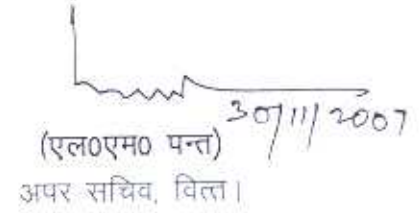 30/11/2007
(एल0एम0 पन्त)
अपर सचिव, वित्त।